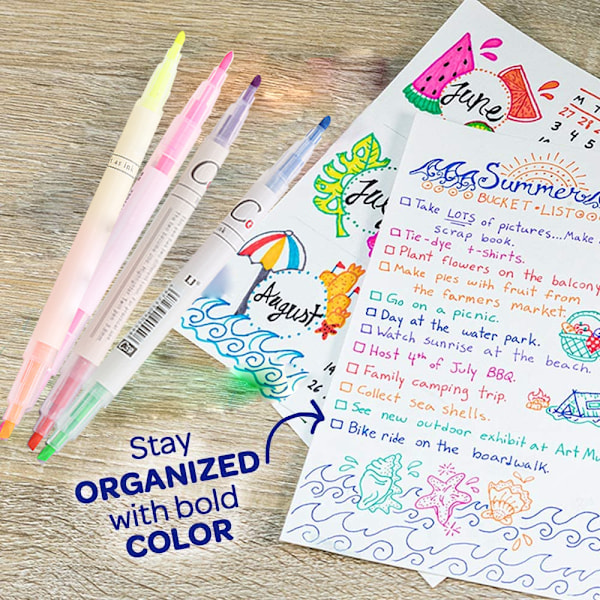 June
M T
27 28
3 4 5
Ju
August
Summer
BUCKET • LIST
Take LOTS of pictures... Make
scrap book.
Tie-dye t-shirts.
Plant flowers on the balcony
Make pies with fruit from
the farmers market.
Go on a picnic.
Day at the water park.
Watch sunrise at the beach.
Host 4th of July BBQ.
Family camping trip.
Collect sea shells.
See new outdoor exhibit at Art Mu
Bike ride on the boardwalk.
Stay
ORGANIZED
with bold
COLOR